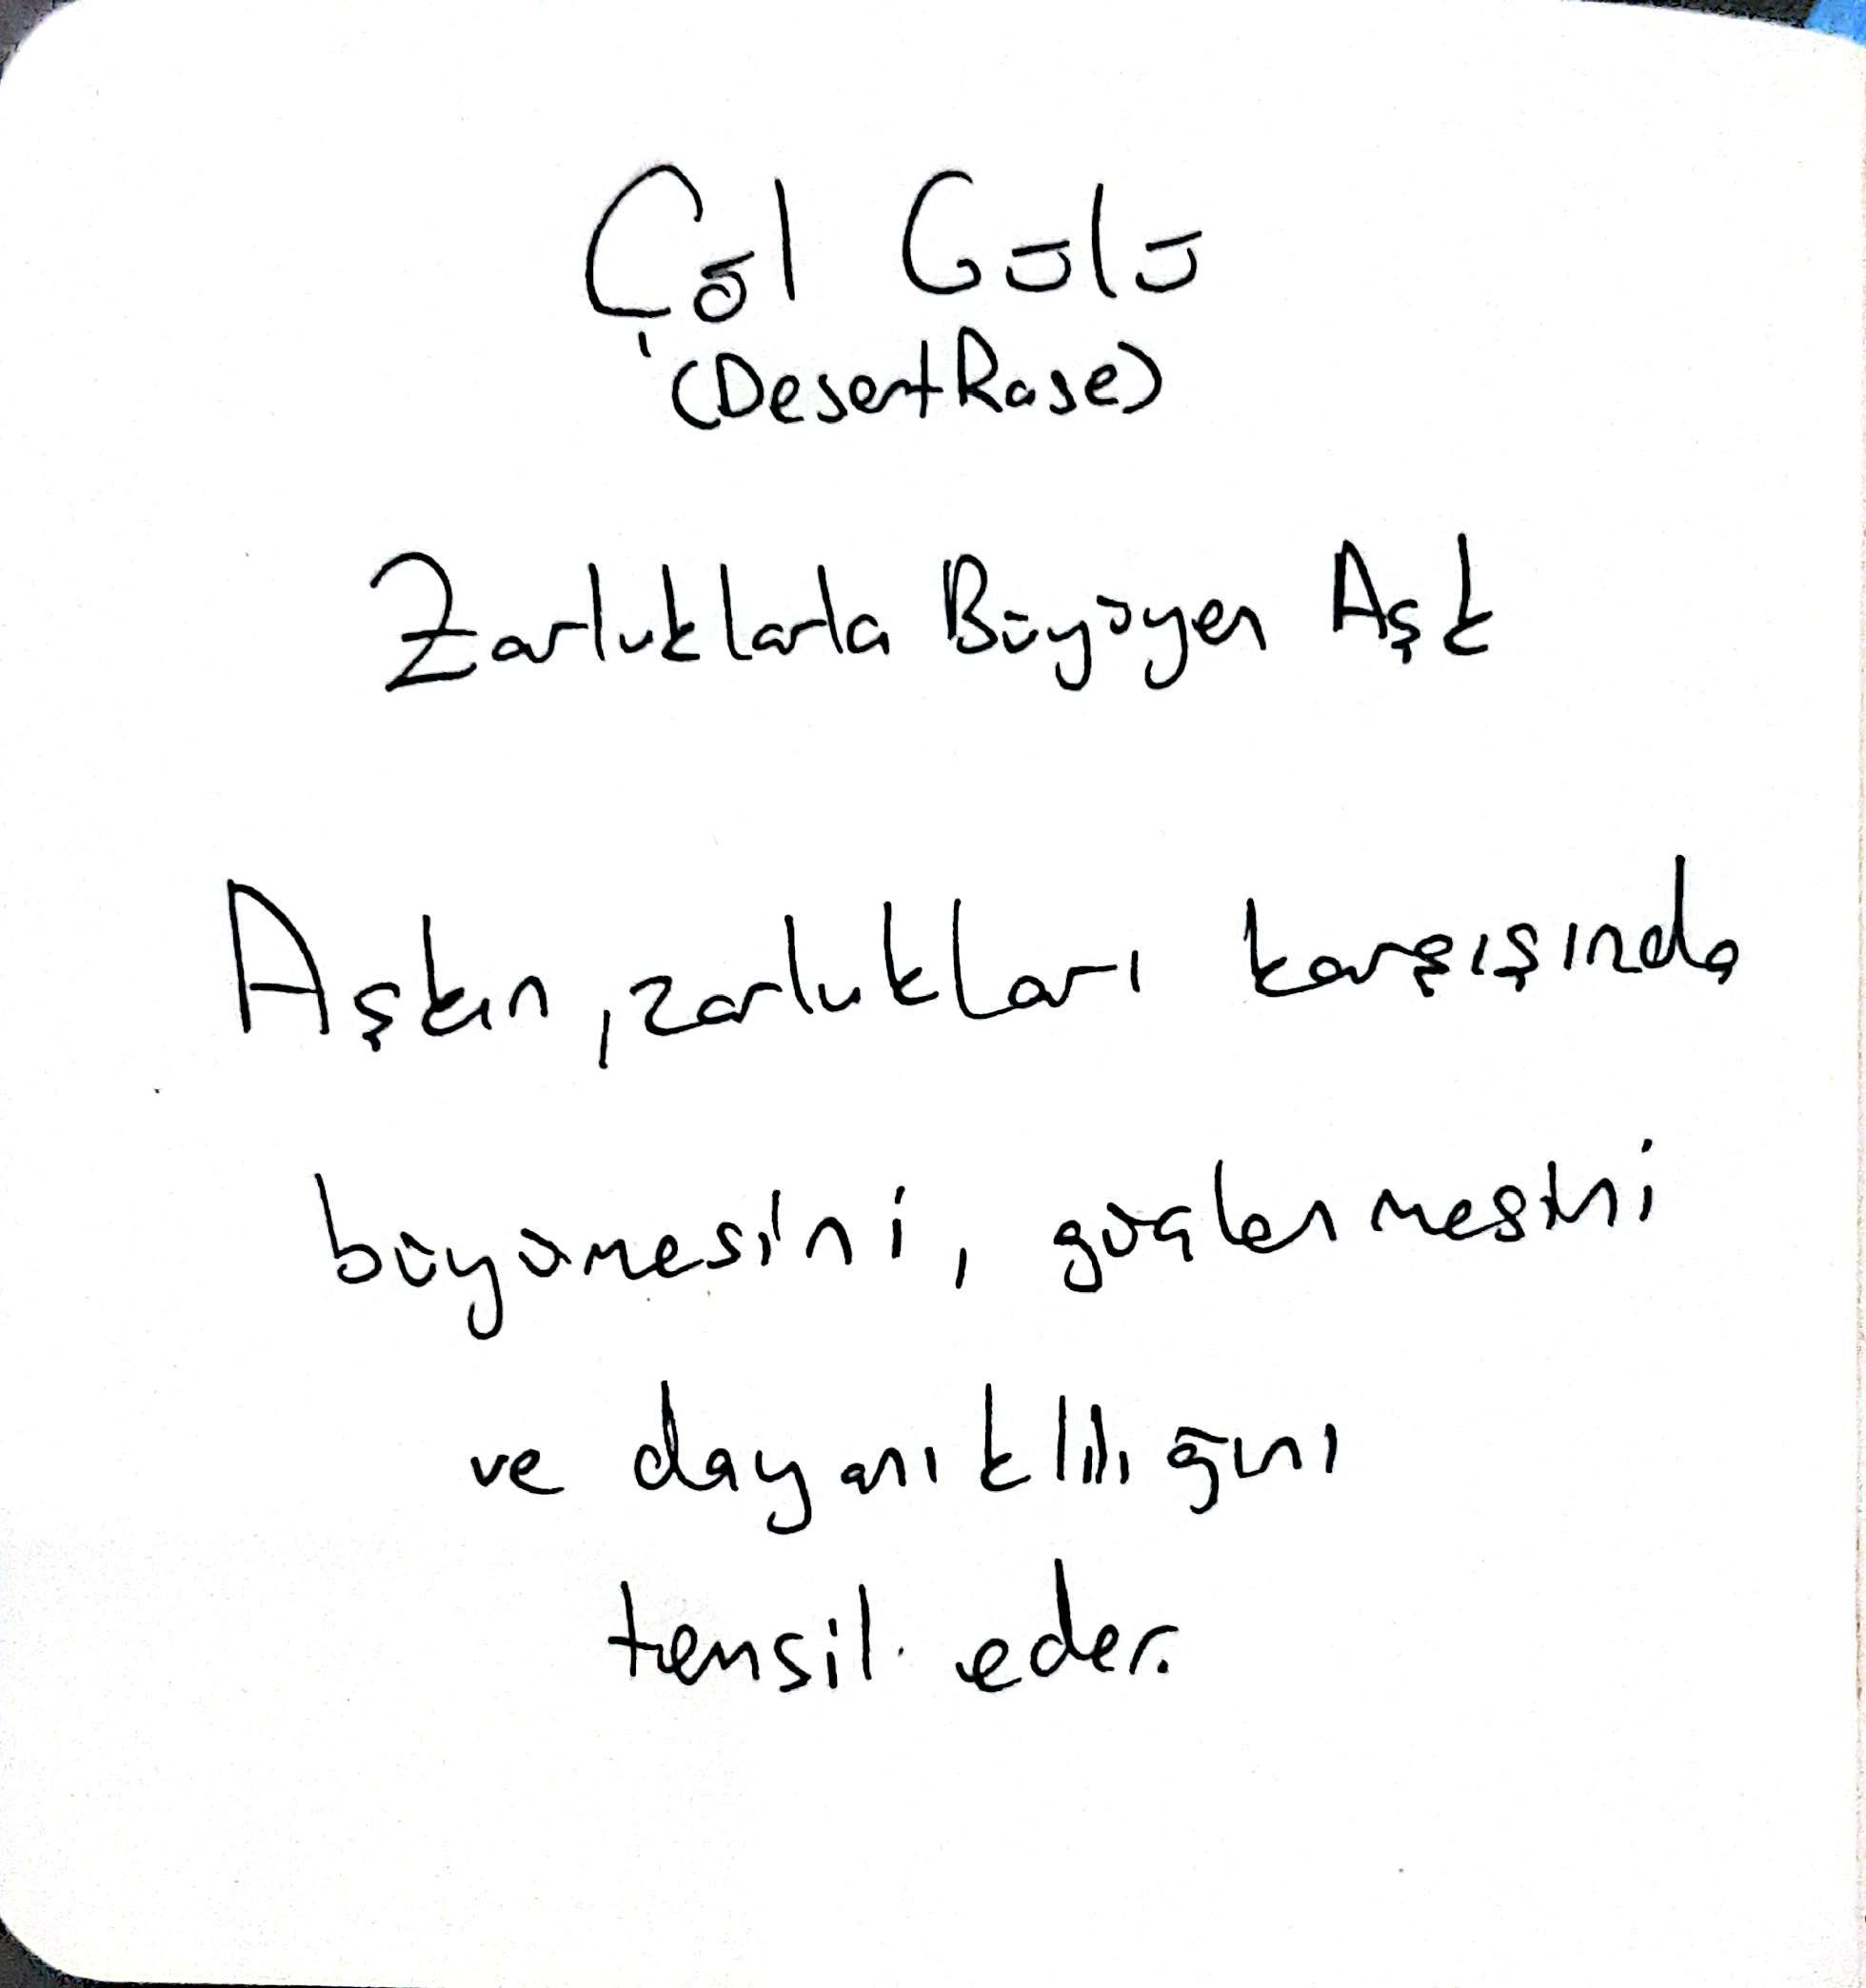 Çöl Gülü
(Desert Rose)
Zorluklarla Büyüyen Aşk
Aşkın, zorlukları karşışında
büyümesini, güçlenmesini
ve dayanıklılığını
temsil eder.